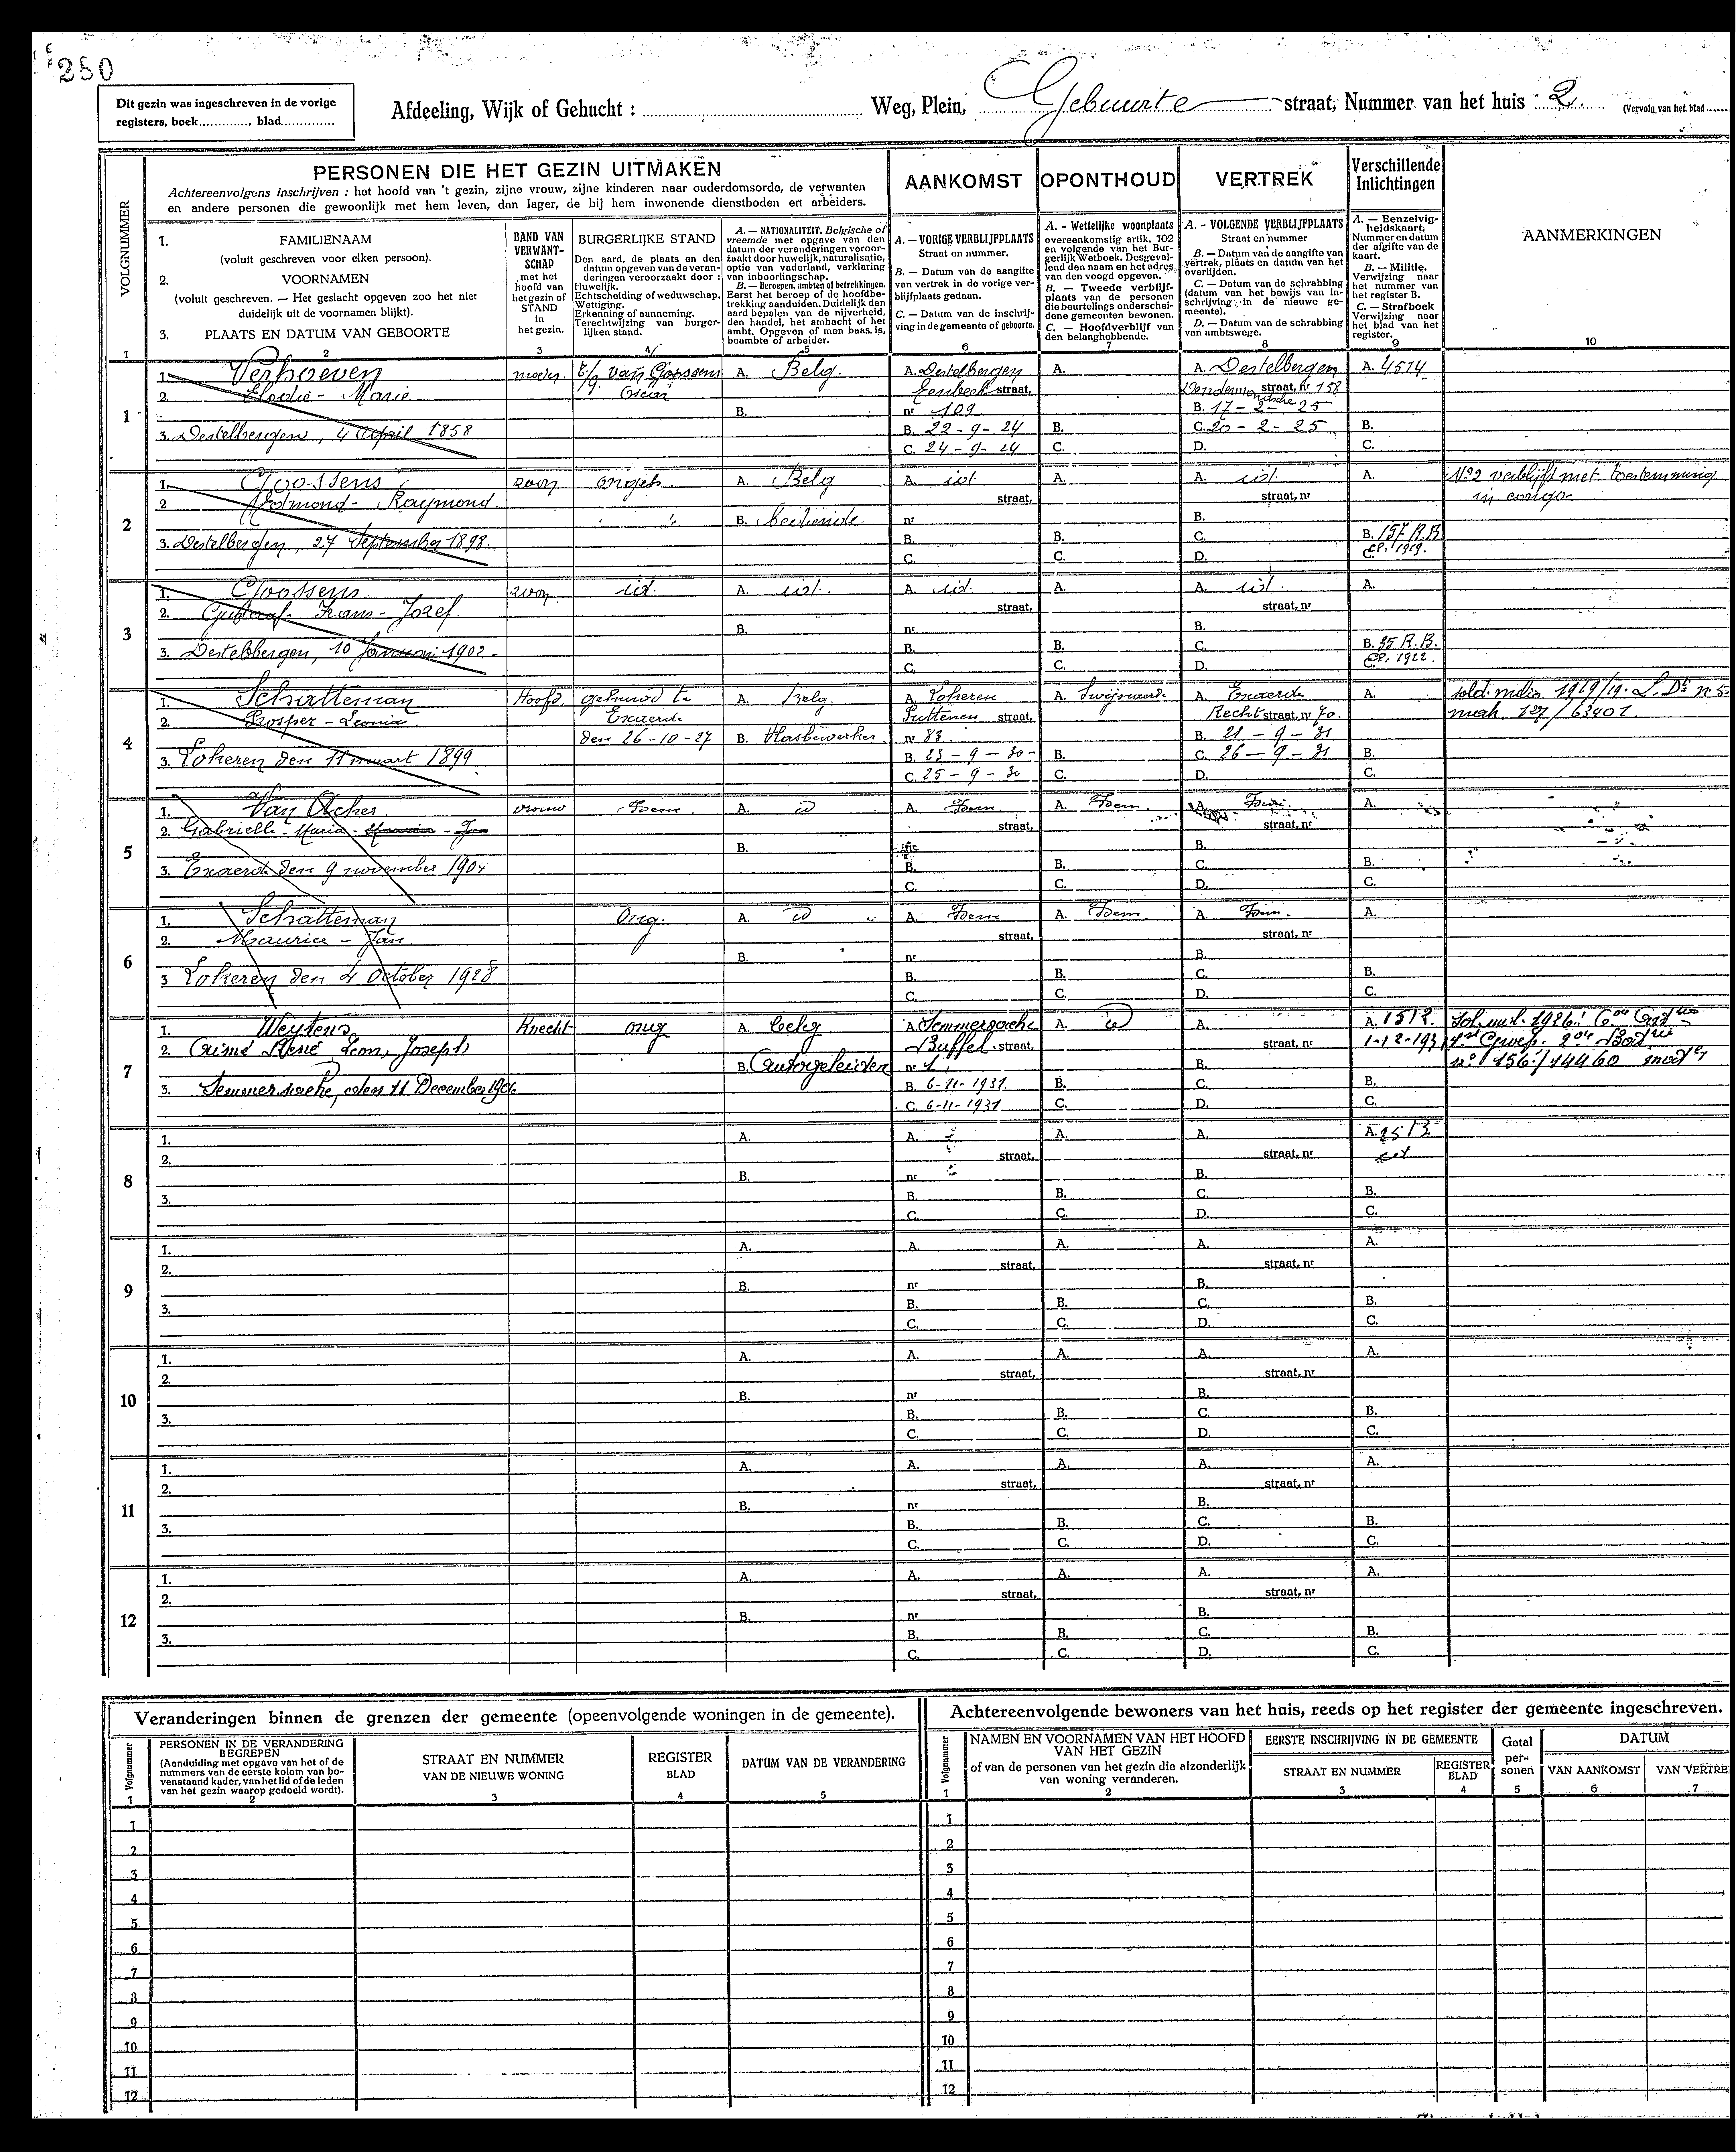 250
Dit gezin was ingeschreven in de vorige
registers, boek............., blad..............
Afdeeling, Wijk of Gehucht : ............ Weg, Plein, Gebuurte straat, Nummer van het huis 2. (Vervolg van het blad......
PERSONEN DIE HET GEZIN UITMAKEN
Achtereenvolgens inschrijven : het hoofd van 't gezin, zijne vrouw, zijne kinderen naar ouderdomsorde, de verwanten
en andere personen die gewoonlijk met hem leven, dan lager, de bij hem inwonende dienstboden en arbeiders.
AANKOMST OPONTHOUD VERTREK
Verschillende
Inlichtingen
VOLGNUMMER
1. FAMILIENAAM
(voluit geschreven voor elken persoon).
2. VOORNAMEN
(voluit geschreven. — Het geslacht opgeven zoo het niet
duidelijk uit de voornamen blijkt).
3. PLAATS EN DATUM VAN GEBOORTE
BAND VAN
VERWANT-
SCHAP
met het
hoofd van
het gezin of
STAND
in
het gezin.
BURGERLIJKE STAND
Den aard, de plaats en den
datum opgeven van de veran-
deringen veroorzaakt door :
Huwelijk.
Echtscheiding of weduwschap.
Wettiging.
Erkenning of aanneming.
Terechtwijzing van burger-
lijken stand.
A. — NATIONALITEIT. Belgische of
vreemde met opgave van den
datum der veranderingen veroor-
zaakt door huwelijk, naturalisatie,
optie van vaderland, verklaring
van inboorlingschap.
B. — Beroepen, ambten of betrekkingen.
Eerst het beroep of de hoofdbe-
trekking aanduiden. Duidelijk den
aard bepalen van de nijverheid,
den handel, het ambacht of het
ambt. Opgeven of men baas, is,
beambte of arbeider.
A. — VORIGE VERBLIJFPLAATS
Straat en nummer.
B. — Datum van de aangifte
van vertrek in de vorige ver-
blijfplaats gedaan.
C. — Datum van de inschrij-
ving in de gemeente of geboorte.
A. - Wettelijke woonplaats
overeenkomstig artik. 102
en volgende van het Bur-
gerlijk Wetboek. Desgeval-
lend den naam en het adres
van den voogd opgeven.
B. — Tweede verblijf-
plaats van de personen
die beurtelings onderschei-
dene gemeenten bewonen.
C. — Hoofdverblijf van
den belanghebbende.
A. - VOLGENDE VERBLIJFPLAATS
Straat en nummer
B. — Datum van de aangifte van
vertrek, plaats en datum van het
overlijden.
C. — Datum van de schrabbing
(datum van het bewijs van in-
schrijving in de nieuwe ge-
meente).
D. — Datum van de schrabbing
van ambtswege.
A. — Eenzelvig-
heidskaart.
Nummer en datum
der afgifte van de
kaart.
B. — Militie.
Verwijzing naar
het nummer van
het register B.
C. — Strafboek
Verwijzing naar
het blad van het
register.
AANMERKINGEN
1 2 3 4 5 6 7 8 9 10
1
1. Verhoeven moeder van Goossens A. Belg. A. Destelbergen A. A. Destelbergen A. 4514
2. Elodie - Marie Oscar Eenbeek straat, Dendermondsche straat, nr 158
B. nr 109 B. 17 - 2 - 25
3. Destelbergen, 4 April 1858 B. 22 - 9 - 24 B. C. 20 - 2 - 25 B.
C. 24 - 9 - 24 C. D. C.
2
1. Goossens zoon ongeh. A. Belg A. id. A. A. id. A. No 2 verblijft met toestemming
2 Edmond - Raymond straat, straat, nr in congo
B. bediende nr B.
3. Destelbergen, 27 September 1898. B. B. C. B. 157 R.B
C. C. D. C. 1919.
3
1. Goossens zoon id. A. id. A. id. A. A. id. A.
2. Gustaaf - Frans - Jozef. straat, straat, nr
B. nr B.
3. Destelbergen, 10 Januari 1902 - B. B. C. B. 35 R.B.
C. C. D. C. 1922.
4
1. Schatteman Hoofd. gehuwd te A. Belg. A. Lokeren A. Zwijnaarde A. Exaerde A.
2. Prosper - Leonia Exaerde Puttenen straat, Recht straat, nr 70.
den 26-10-27 B. Vlasbewerker nr 83 B. 21 - 9 - 31
3. Lokeren den 11 maart 1899 B. 23 - 9 - 30 - B. C. 26 - 9 - 31 B.
C. 25 - 9 - 30 C. D. C.
sold. milic 1919/19.
127/63401.
5
1. Van Acker vrouw Idem A. id A. Idem. A. Idem. A. Idem. A.
2. Gabrielle - Maria - straat, straat, nr
B. nr B.
3. Exaerde den 9 november 1904 B. B. C. B.
C. C. D. C.
6
1. Schatteman Ong. A. id A. Idem A. Idem. A. Idem. A.
2. Maurice - Jan. straat, straat, nr
B. nr B.
3 Lokeren den 4 October 1928 B. B. C. B.
C. C. D. C.
7
1. Weytens Knecht ong A. belg A. Semmersaeke A. id A. A. 1512.
2. Aimé René, Leon, Joseph Buffel straat. straat, nr 1-12-1931
B. Autogeleider nr 1, B.
3. Semmersaeke, den 11 December 190 B. 6-11-1931. B. C. B.
C. 6-11-1931 C. D. C.
Sol. mil. 1926.
no 156/14460
8
1. A. A. A. A. A. 2513.
2. straat, straat, nr
B. nr B.
3. B. B. C. B.
C. C. D. C.
9
1. A. A. A. A. A.
2. straat, straat, nr
B. nr B.
3. B. B. C. B.
C. C. D. C.
10
1. A. A. A. A. A.
2. straat, straat, nr
B. nr B.
3. B. B. C. B.
C. C. D. C.
11
1. A. A. A. A. A.
2. straat, straat, nr
B. nr B.
3. B. B. C. B.
C. C. D. C.
12
1. A. A. A. A. A.
2. straat, straat, nr
B. nr B.
3. B. B. C. B.
C. C. D. C.
Veranderingen binnen de grenzen der gemeente (opeenvolgende woningen in de gemeente).
Volgnummer
PERSONEN IN DE VERANDERING
BEGREPEN
(Aanduiding met opgave van het of de
nummers van de eerste kolom van bo-
venstaand kader, van het lid of de leden
van het gezin waarop gedoeld wordt).
STRAAT EN NUMMER
VAN DE NIEUWE WONING
REGISTER
BLAD
DATUM VAN DE VERANDERING
1 2 3 4 5
1
2
3
4
5
6
7
8
9
10
11
12
Achtereenvolgende bewoners van het huis, reeds op het register der gemeente ingeschreven.
Volgnummer
NAMEN EN VOORNAMEN VAN HET HOOFD
VAN HET GEZIN
of van de personen van het gezin die afzonderlijk
van woning veranderen.
EERSTE INSCHRIJVING IN DE GEMEENTE
STRAAT EN NUMMER
REGISTER
BLAD
Getal
per-
sonen
DATUM
VAN AANKOMST VAN VERTRE
1 2 3 4 5 6 7
1
2
3
4
5
6
7
8
9
10
11
12